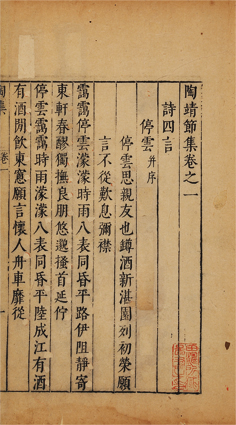 陶靖節集卷之一
詩四言
停雲并序
停雲思親友也罇酒新湛園列初榮願
言不從歎息彌襟
靄靄停雲濛濛時雨八表同昏平路伊阻靜寄
東軒春醪獨撫良朋悠邈搔首延佇
停雲靄靄時雨濛濛八表同昏平陸成江有酒
有酒閒飲東窻願言懷人舟車靡從
陶集
卷一